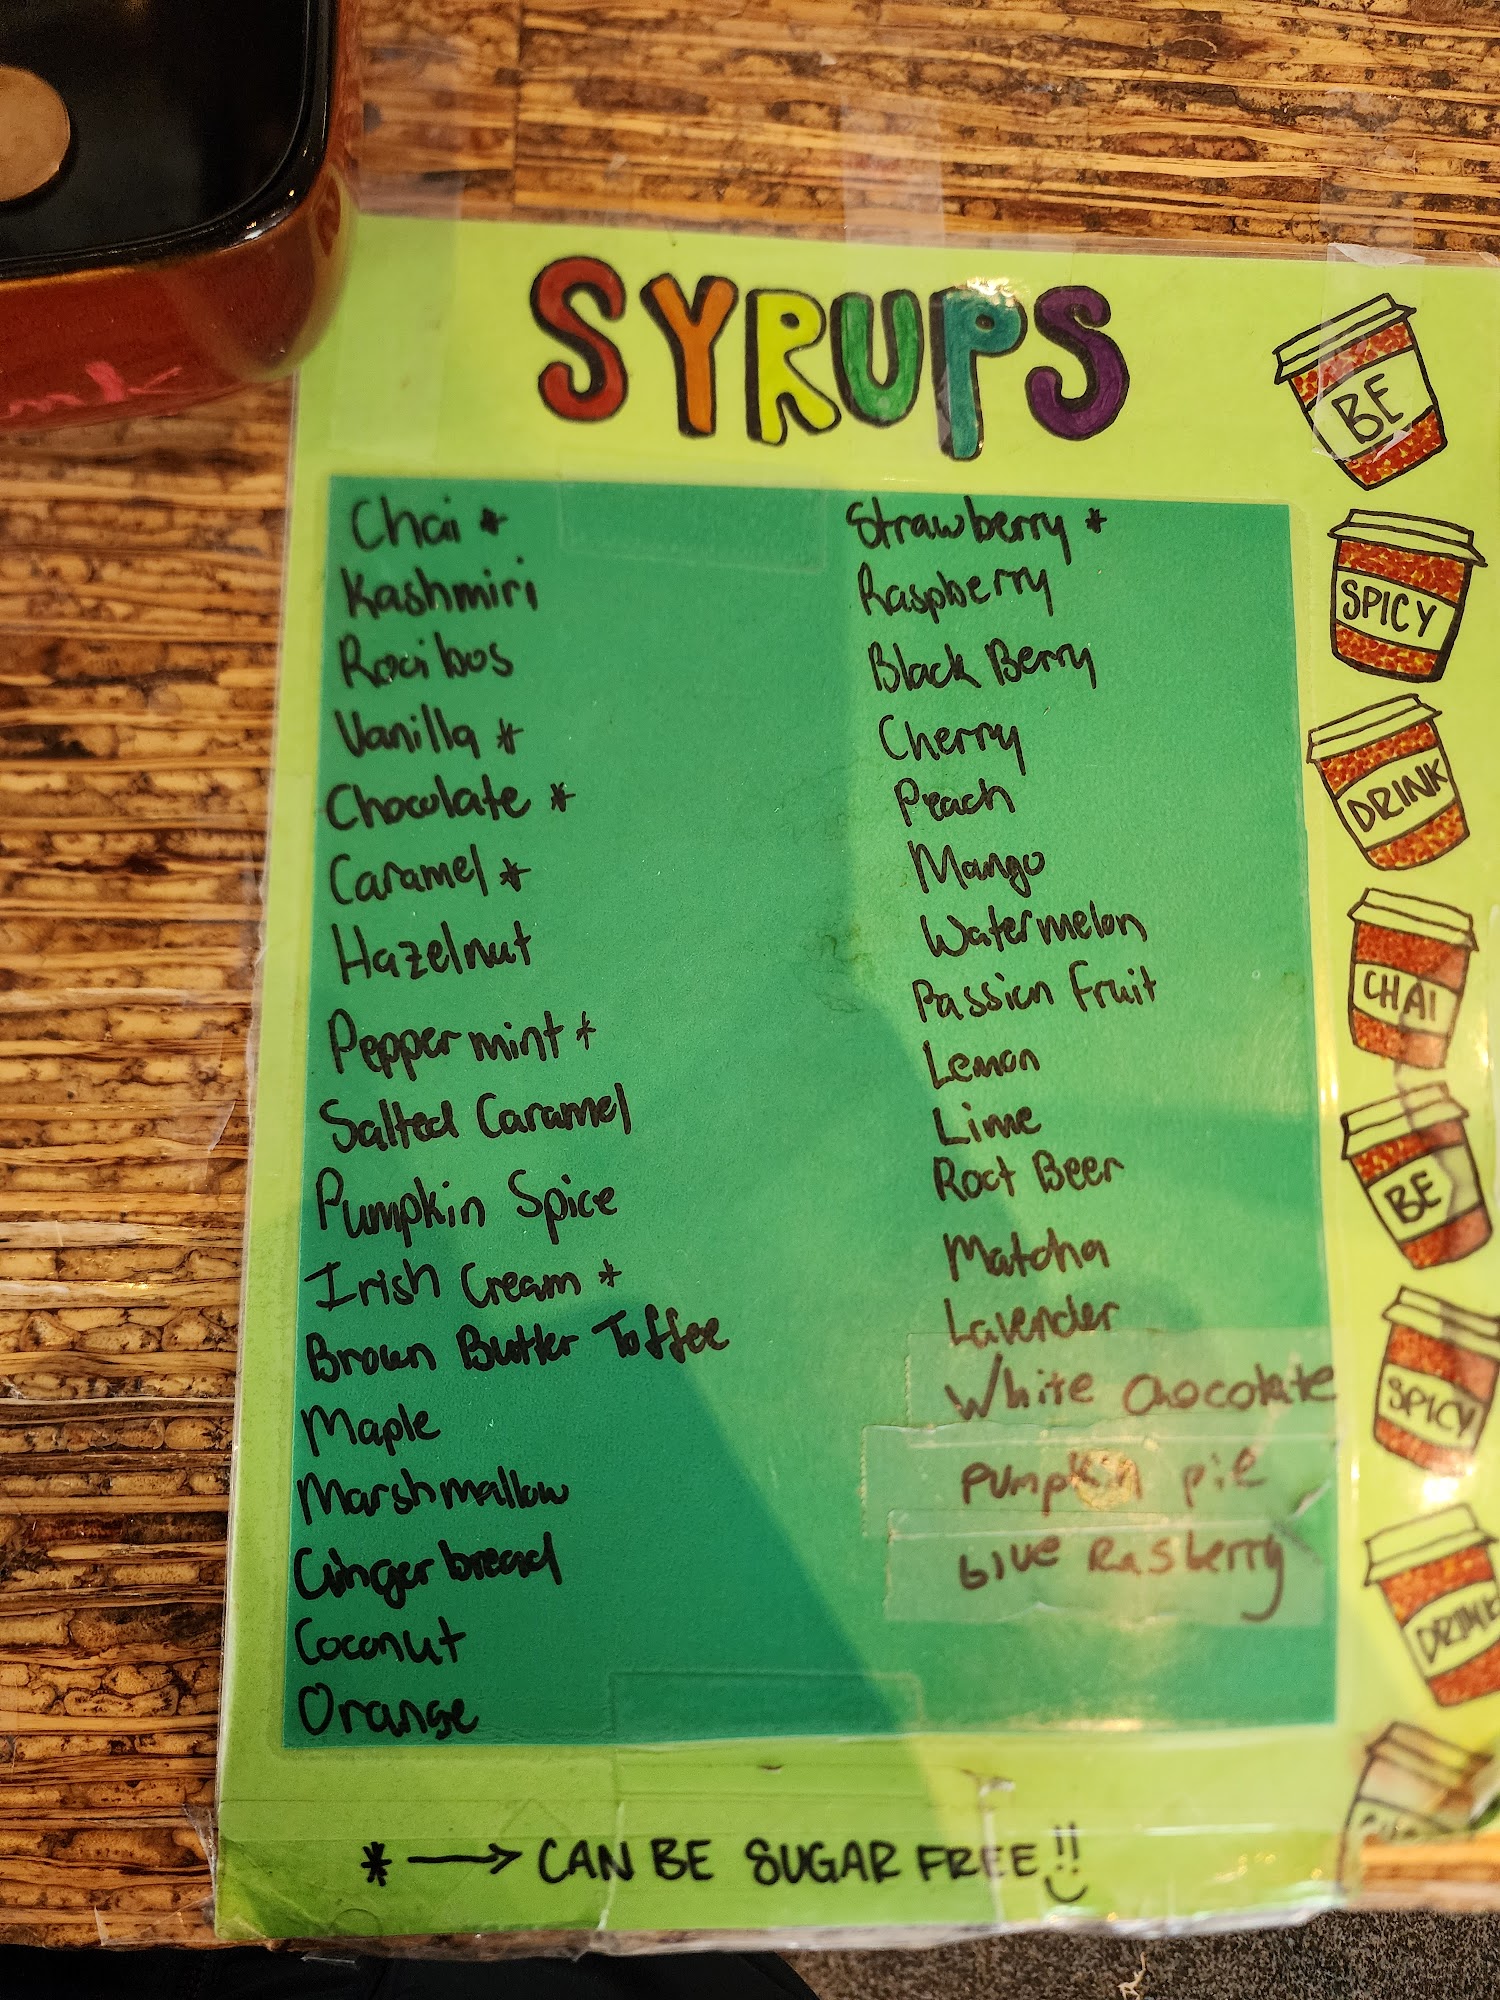 SYRUPS
Chai *
Kashmiri
Rooibos
Vanilla *
Chocolate *
Caramel *
Hazelnut
Peppermint *
Salted Caramel
Pumpkin Spice
Irish Cream *
Brown Butter Toffee
Maple
Marshmallow
Gingerbread
Coconut
Orange
Strawberry *
Raspberry
Black Berry
Cherry
Peach
Mango
Watermelon
Passion Fruit
Lemon
Lime
Root Beer
Matcha
Lavender
White Chocolate
Pumpkin pie
blue Rasberry
* → CAN BE SUGAR FREE!!
BE
SPICY
DRINK
CHAI
BE
SPICY
DRINK